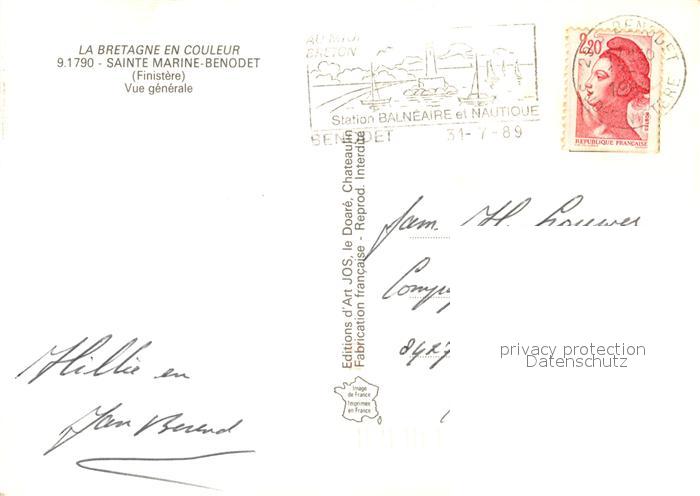 LA BRETAGNE EN COULEUR
9.1790 - SAINTE MARINE-BENODET
(Finistère)
Vue générale
AU MIDI
BRETON
Station BALNÉAIRE et NAUTIQUE
BENODET 31-7-89
BENODET
2,20
POSTES
REPUBLIQUE FRANÇAISE
Editions d'Art JOS, le Doaré, Chateaulin
Fabrication française - Reprod. Interdite
fam. H. Louwes
8427
privacy protection
Datenschutz
Hillie en
Jan Berend
Image
de France
Imprimée
en France